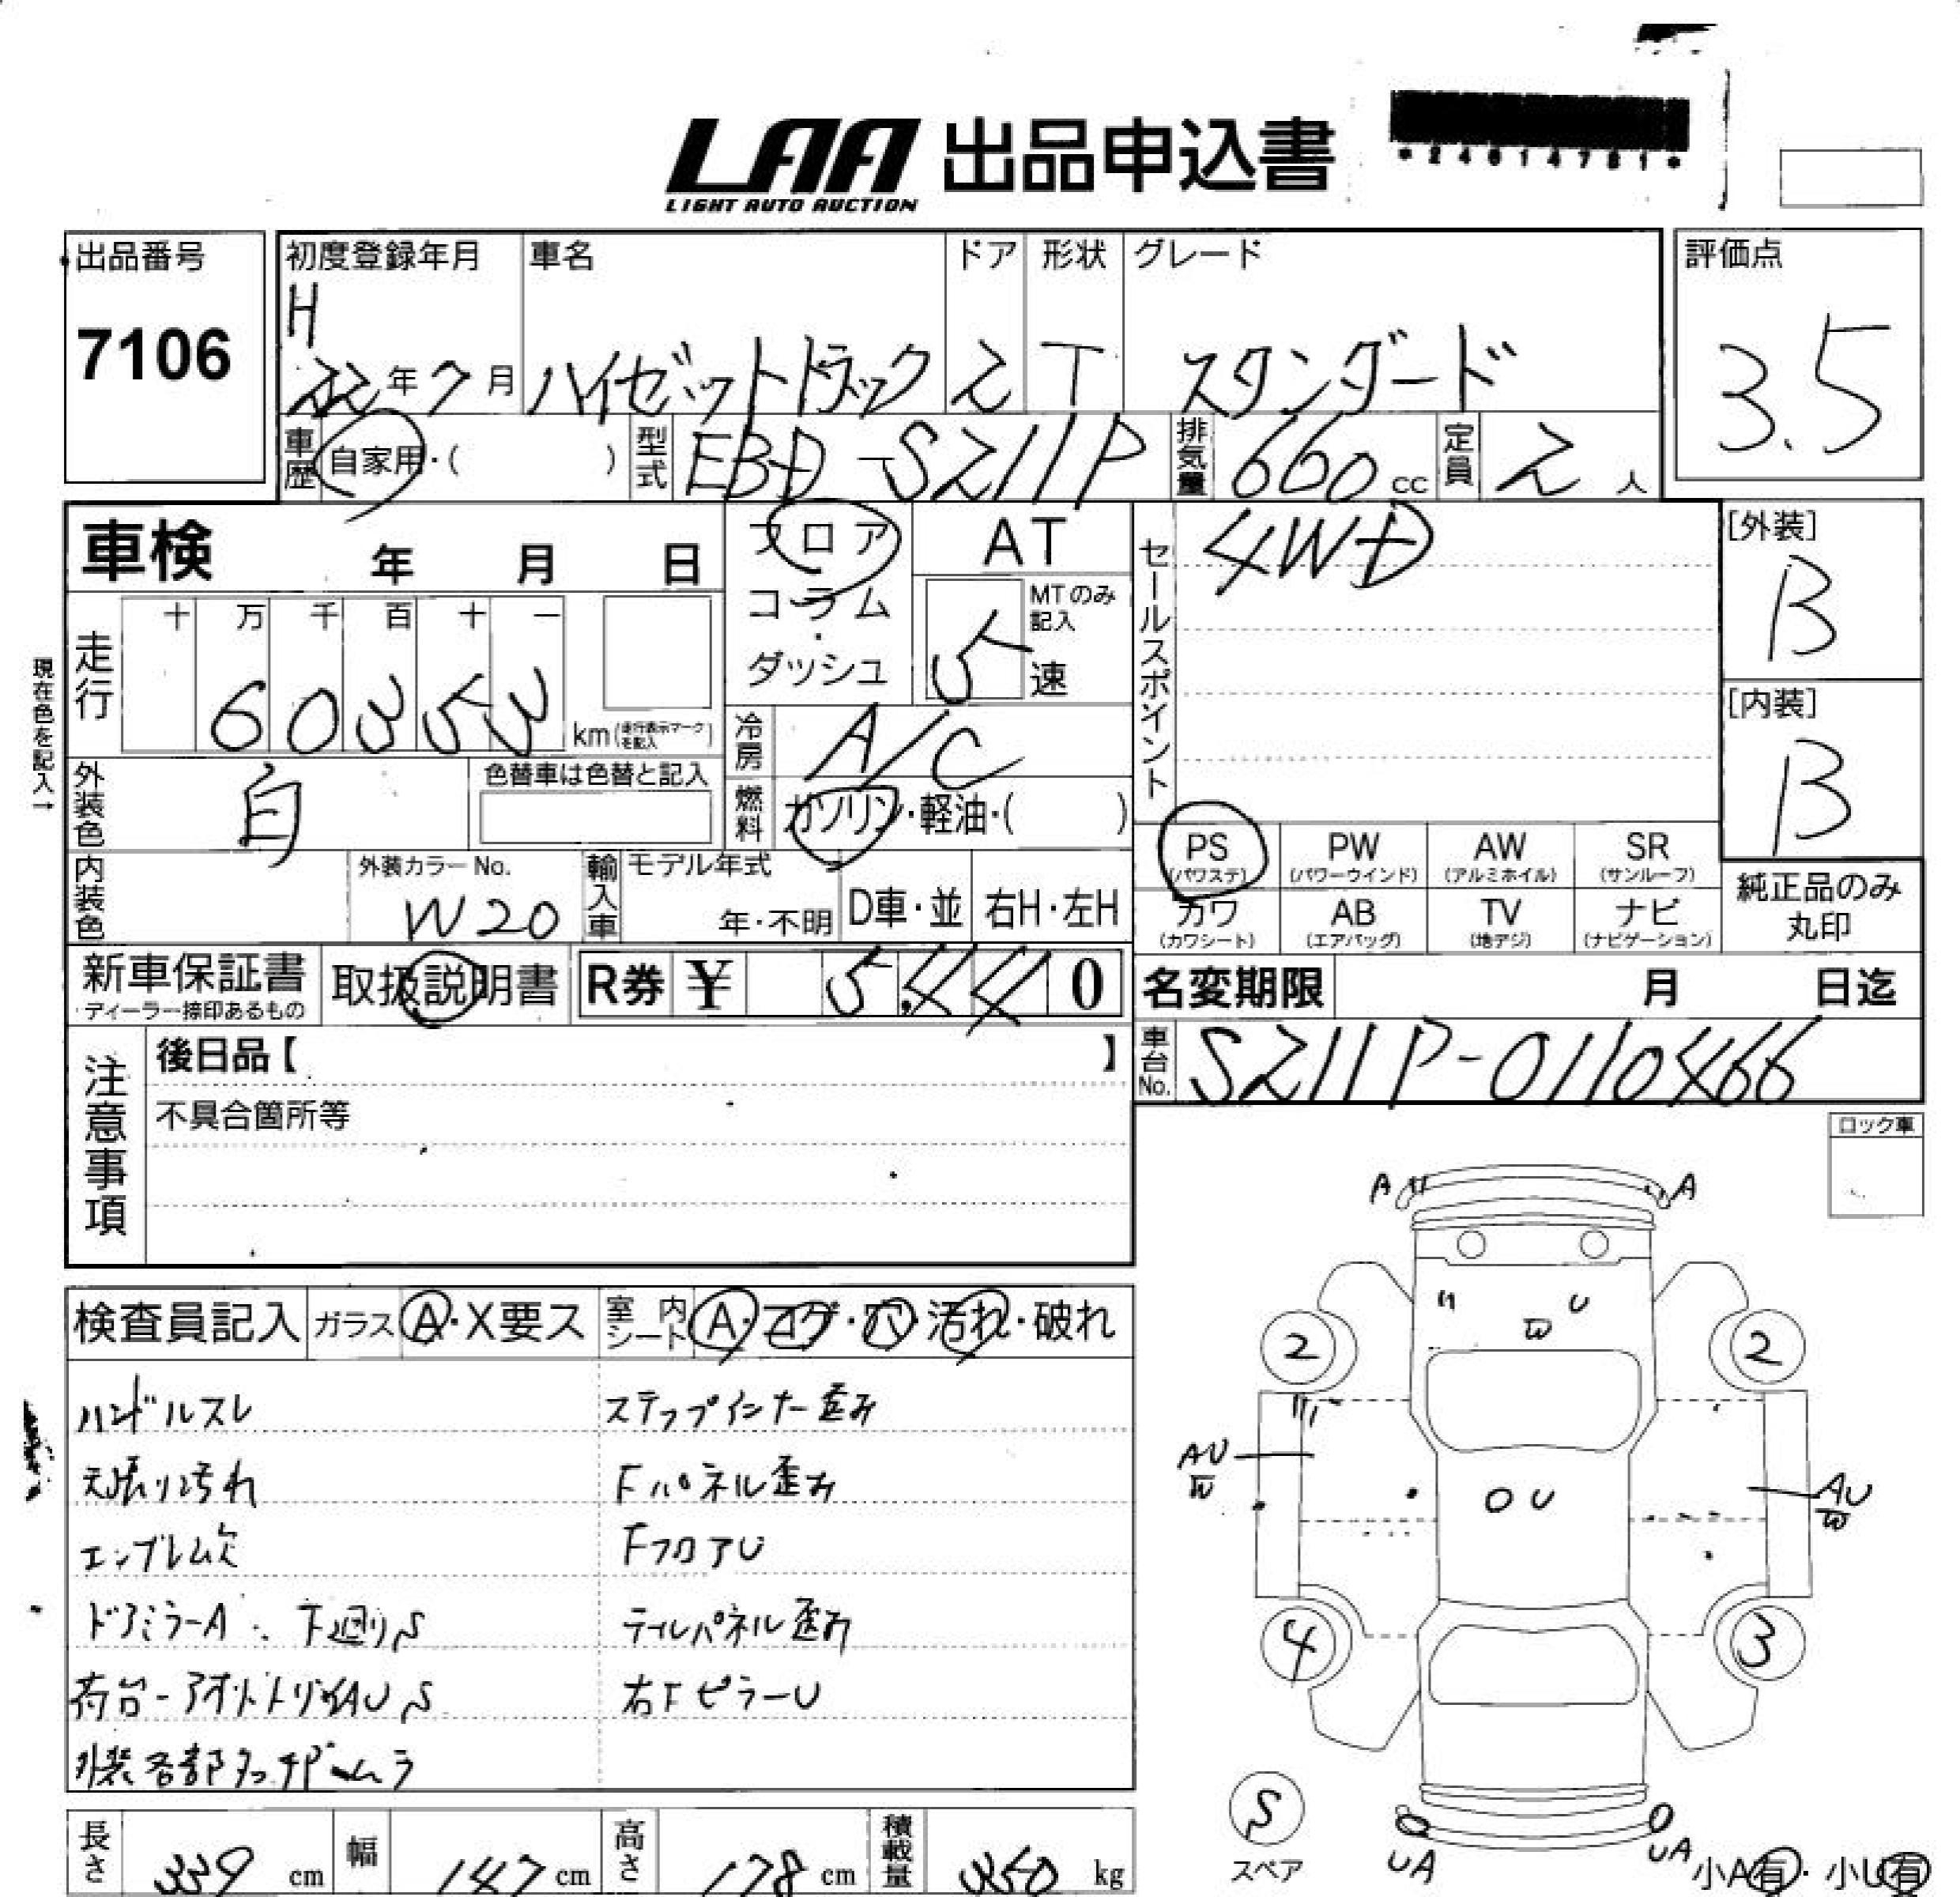 LAA 出品申込書
LIGHT AUTO AUCTION
出品番号
7106
初度登録年月
H
22年7月
車名
ハイゼットトラック
ドア
2
形状
T
グレード
スタンダード
評価点
3.5
車歴 自家用・( )
型式 EBD-S211P
排気量 660cc
定員 2人
車検 年 月 日
フロア
コラム
・
ダッシュ
AT
MTのみ記入
5速
セールスポイント
4WD
[外装]
B
[内装]
B
現在色を記入→
走行
十 万 千 百 十 一
6 0 3 5 3 km (走行表示マークを記入)
冷房 A/C
外装色 白
色替車は色替と記入
燃料 ガソリン・軽油・( )
PS (パワステ)
PW (パワーウインド)
AW (アルミホイル)
SR (サンルーフ)
カワ (カワシート)
AB (エアバッグ)
TV (地デジ)
ナビ (ナビゲーション)
純正品のみ
丸印
内装色
外装カラーNo.
W20
輸入車
モデル年式
年・不明
D車・並
右H・左H
新車保証書
ディーラー捺印あるもの
取扱説明書
R券 ¥ 5,440
名変期限 月 日迄
車台No. S211P-0110466
注意事項
後日品【 】
不具合箇所等
ロック車
検査員記入 ガラス A・X要ス 室内シート A・コゲ・穴・汚れ・破れ
ハンドルスレ
天張り汚れ
エンブレム欠
ドアミラーA 下廻りS
外装各部タッチP ムラ
ステップインナー歪み
Fパネル歪み
FフロアU
テールパネル歪み
右FピラーU
A
A
U
W
2
2
AU
W
U
AU
W
4
3
S
スペア
UA
UA
小A有・小U有
長さ 339 cm
幅 147 cm
高さ 178 cm
積載量 350 kg